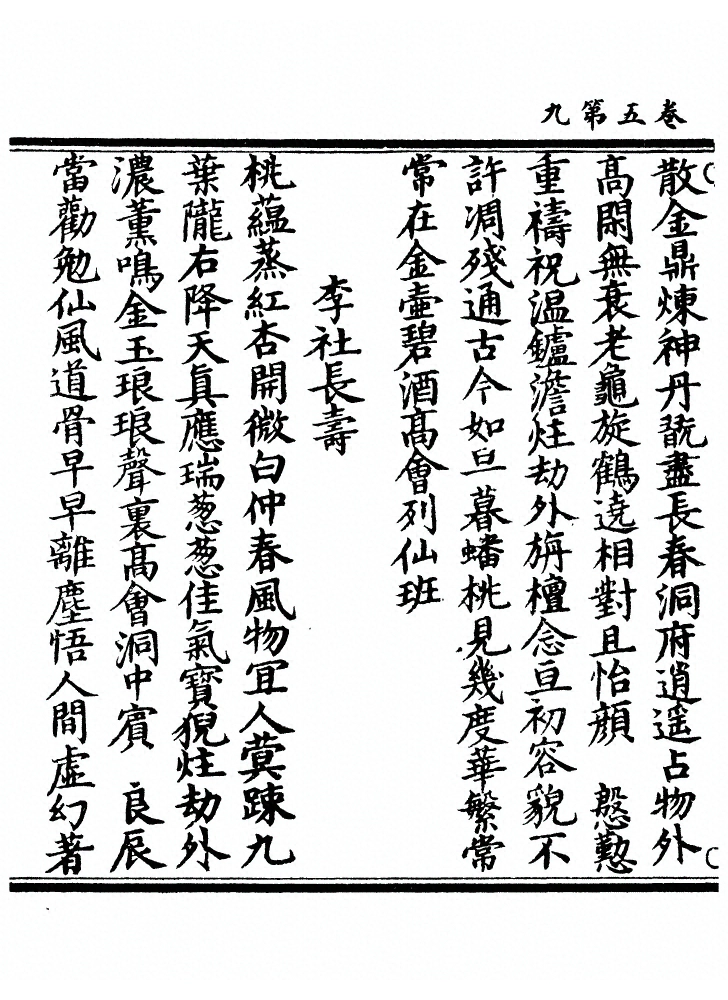 卷五第九
散金鼎煉神丹翫盡長春洞府逍遥占物外
高閑無衰老龜旋鶴遶相對且怡顔　慇懃
重禱祝温鑪澹炷劫外旃檀念亘初容貌不
許凋殘通古今如旦暮蟠桃見幾度華繁常
常在金壷碧酒高會列仙班
李社長壽
桃蕴蒸紅杏開微白仲春風物冝人蓂踈九
葉隴右降天真應瑞葱葱佳氣寶猊炷劫外
濃薰鳴金玉琅琅聲裏高會洞中賓　良辰
當勸勉仙風道骨早早離塵悟人間虛幻著